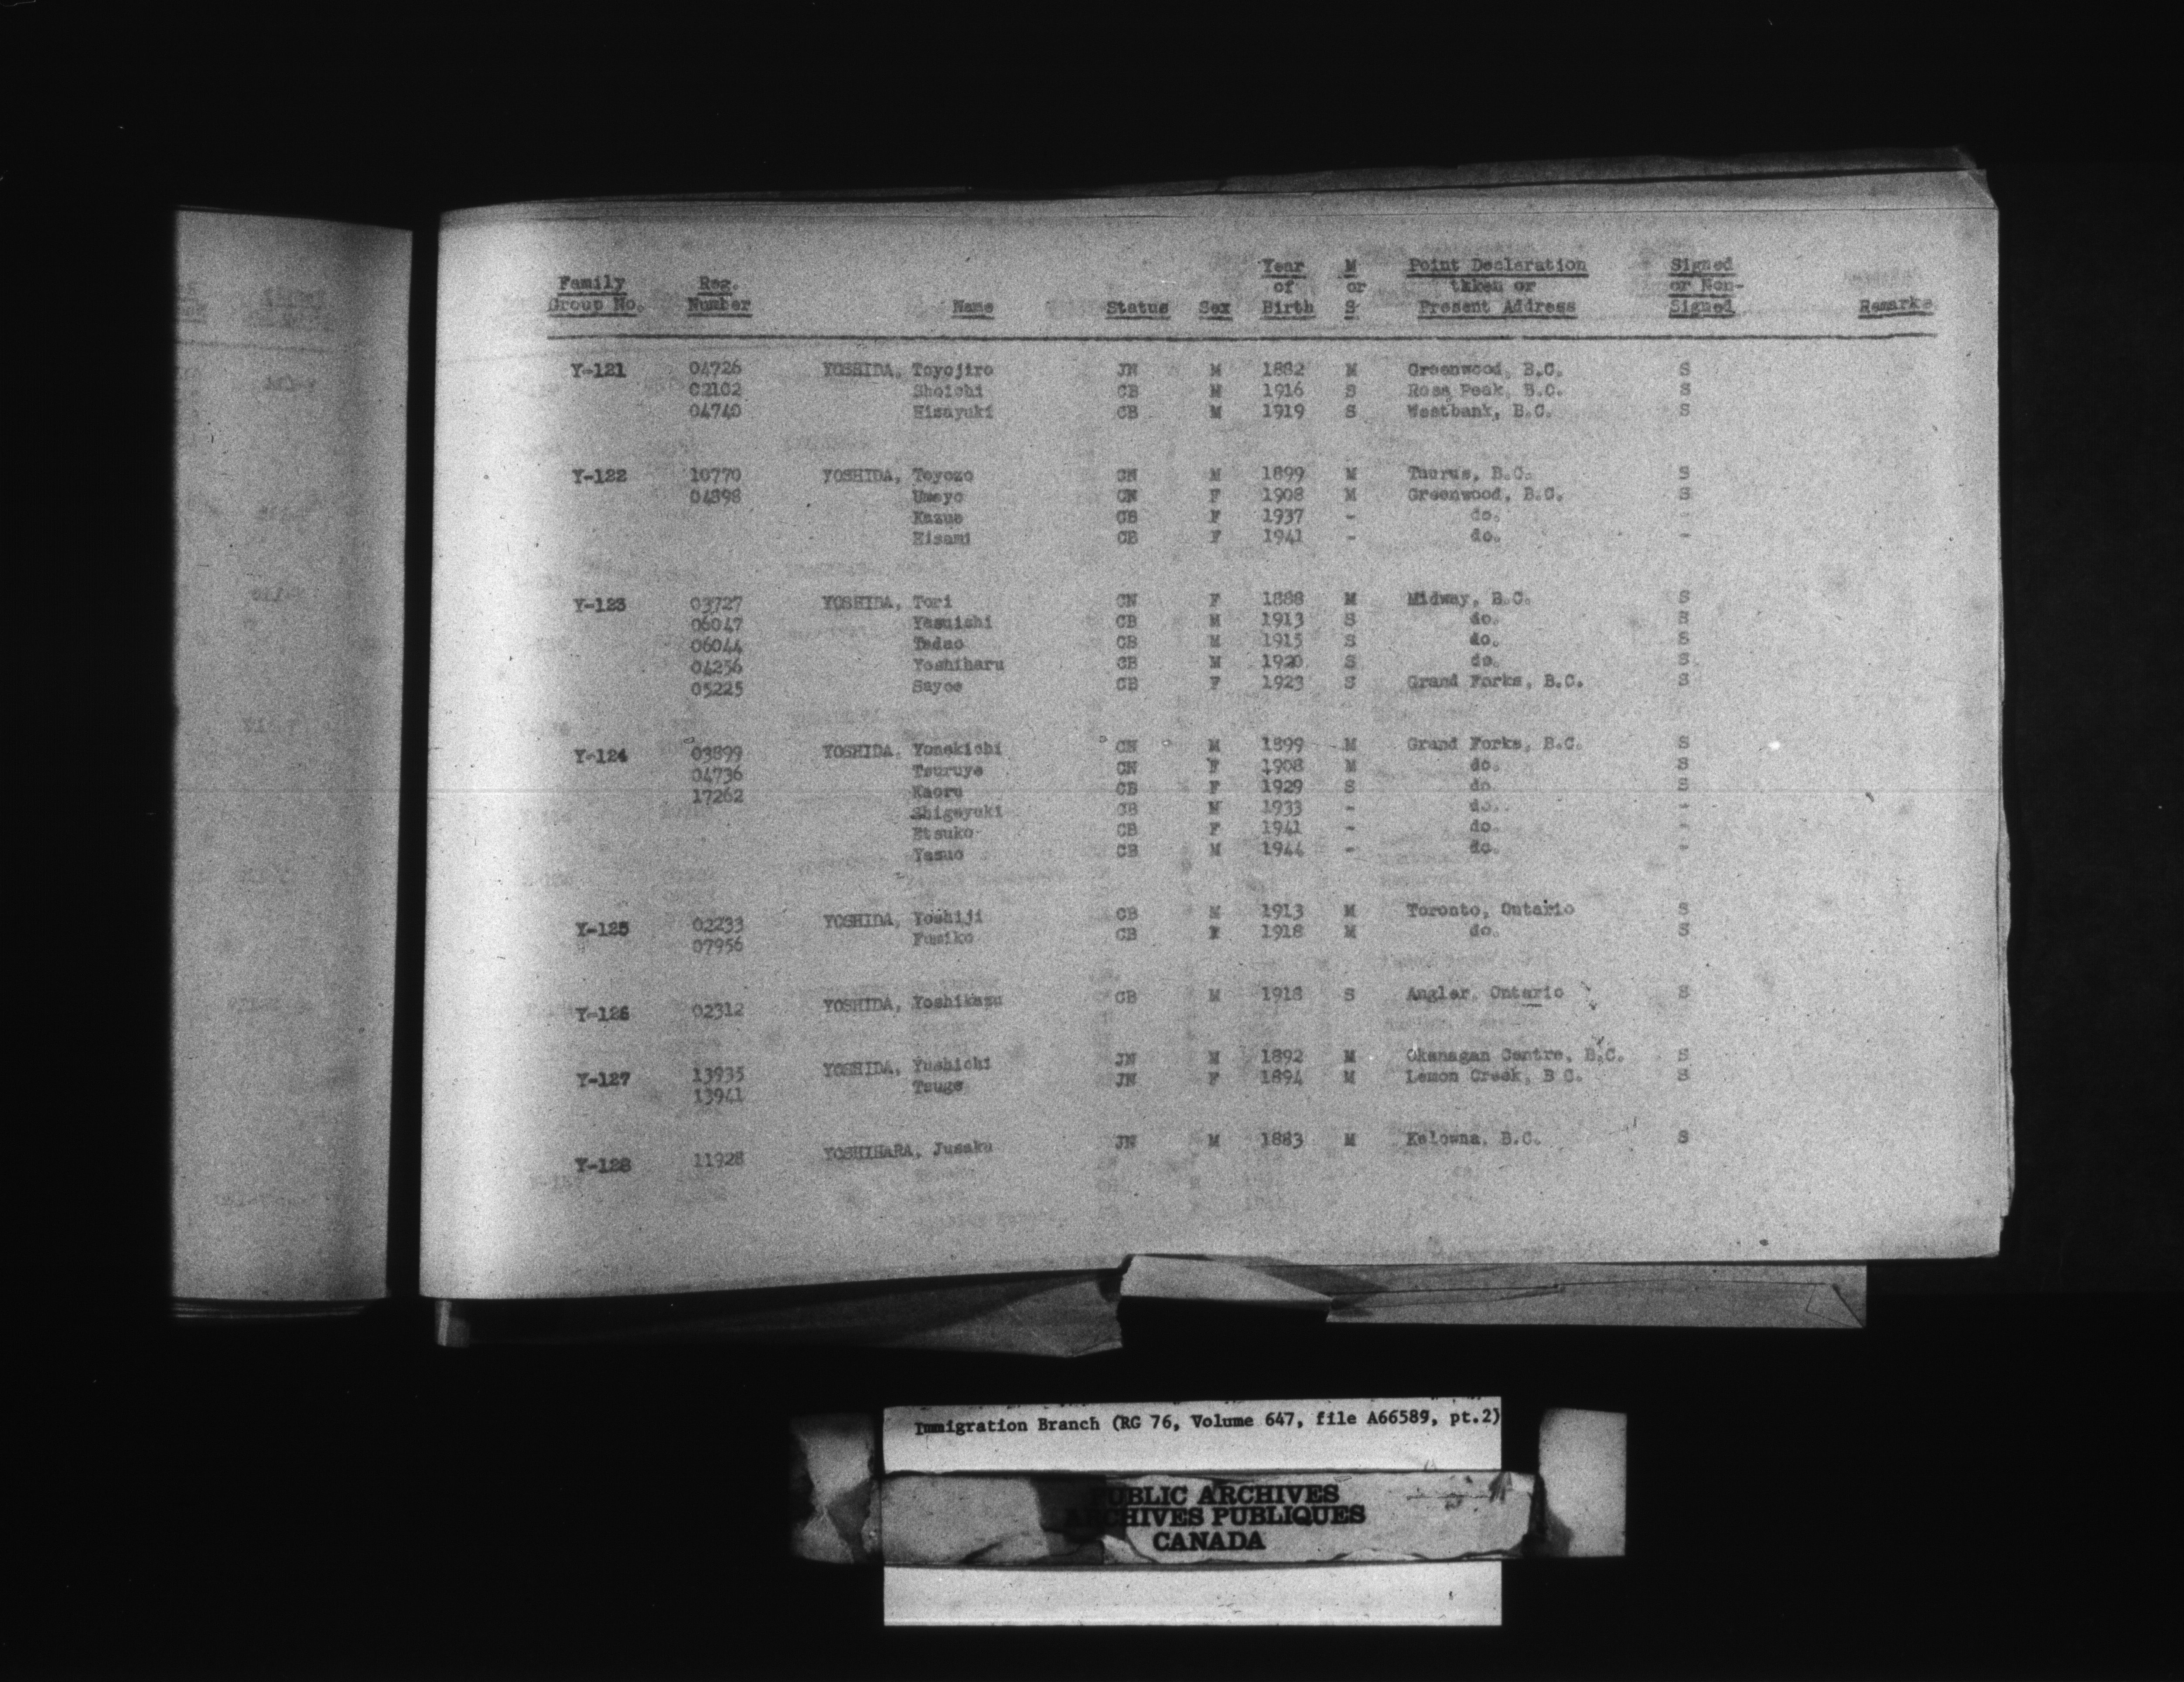 Family Group No. Reg. Number Name Status Sex Year of Birth M or S Point Declaration taken or Present Address Signed or Non-Signed Remarks
Y-121 04726 YOSHIDA, Toyojiro JN M 1882 M Greenwood, B.C. S
02102 Shoichi CB M 1916 S Ross Peak, B.C. S
04740 Hisayuki CB M 1919 S Westbank, B.C. S
Y-122 10770 YOSHIDA, Toyozo CN M 1899 M Taurus, B.C. S
04898 Umeyo CN F 1908 M Greenwood, B.C. S
Kazue CB F 1937 - do. -
Hisami CB F 1941 - do. -
Y-123 03727 YOSHIDA, Tori CN F 1888 M Midway, B.C. S
06047 Yasuichi CB M 1913 S do. S
06044 Tadao CB M 1915 S do. S
04256 Yoshiharu CB M 1920 S do. S
05225 Sayoe CB F 1923 S Grand Forks, B.C. S
Y-124 03899 YOSHIDA, Yonekichi CN M 1899 M Grand Forks, B.C. S
04736 Tsuruye CN F 1908 M do. S
17262 Kaoru CB F 1929 S do. S
Shigeyuki CB M 1933 - do. -
Etsuko CB F 1941 - do. -
Yasuo CB M 1944 - do. -
Y-125 02233 YOSHIDA, Yoshiji CB M 1913 M Toronto, Ontario S
07956 Fumiko CB F 1918 M do. S
Y-126 02312 YOSHIDA, Yoshikazu CB M 1918 S Angler, Ontario S
Y-127 13935 YOSHIDA, Yushichi JN M 1892 M Okanagan Centre, B.C. S
13941 Tsuge JN F 1894 M Lemon Creek, B.C. S
Y-128 11928 YOSHIHARA, Jusaku JN M 1883 M Kelowna, B.C. S
Immigration Branch (RG 76, Volume 647, file A66589, pt.2)
PUBLIC ARCHIVES
ARCHIVES PUBLIQUES
CANADA